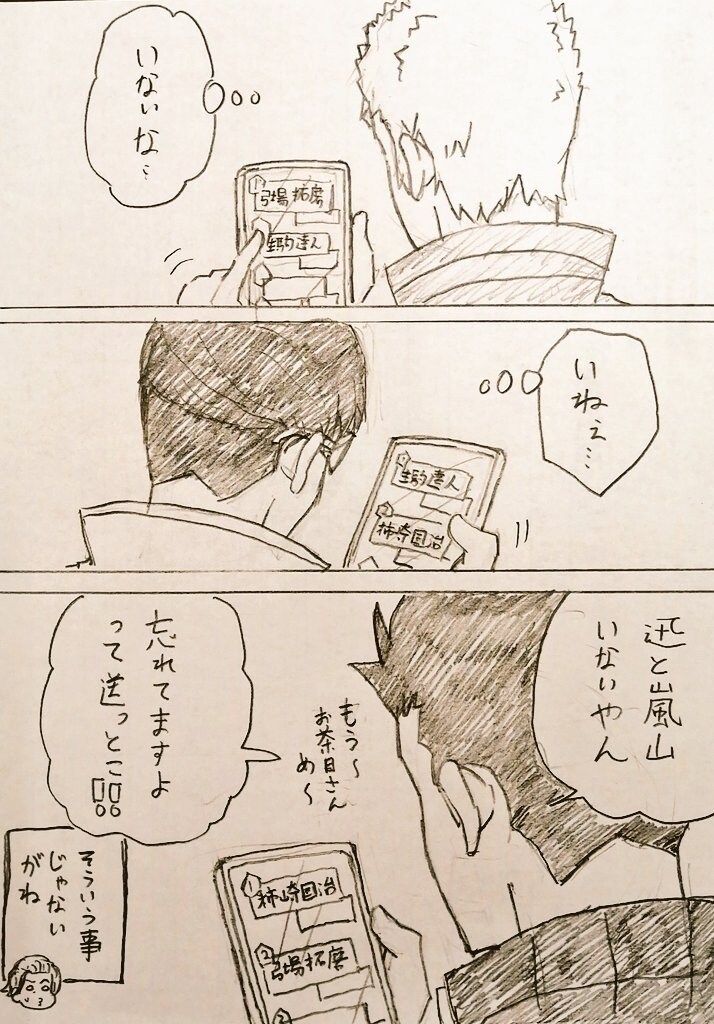 いないな…
1
弓場拓磨
2
生駒達人
いねぇ…
1
生駒達人
2
柿崎国治
迅と嵐山
いないやん
もう〜
お茶目さん
め〜
忘れてますよ
って送っとこ!!
1
柿崎国治
2
弓場拓磨
3
そういう事
じゃない
がね